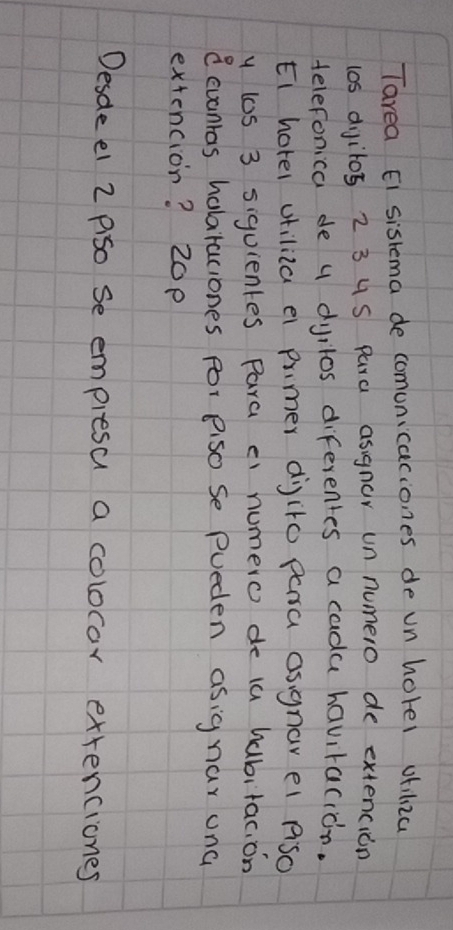 Tarea El sistema de comunicaciones de un hotel utiliza
los dijitos 2 3 4 5 para asignar un numero de extención
telefonica de 4 dijitos diferentes a cada havitación.
El hotel utiliza el primer dijito para asignar el piso
y los 3 siguientes para el numero de la habitación
¿cuantas habitaciones por piso se pueden asignar una
extención? 20p
Desde el 2 piso se empiesa a colocar extenciones